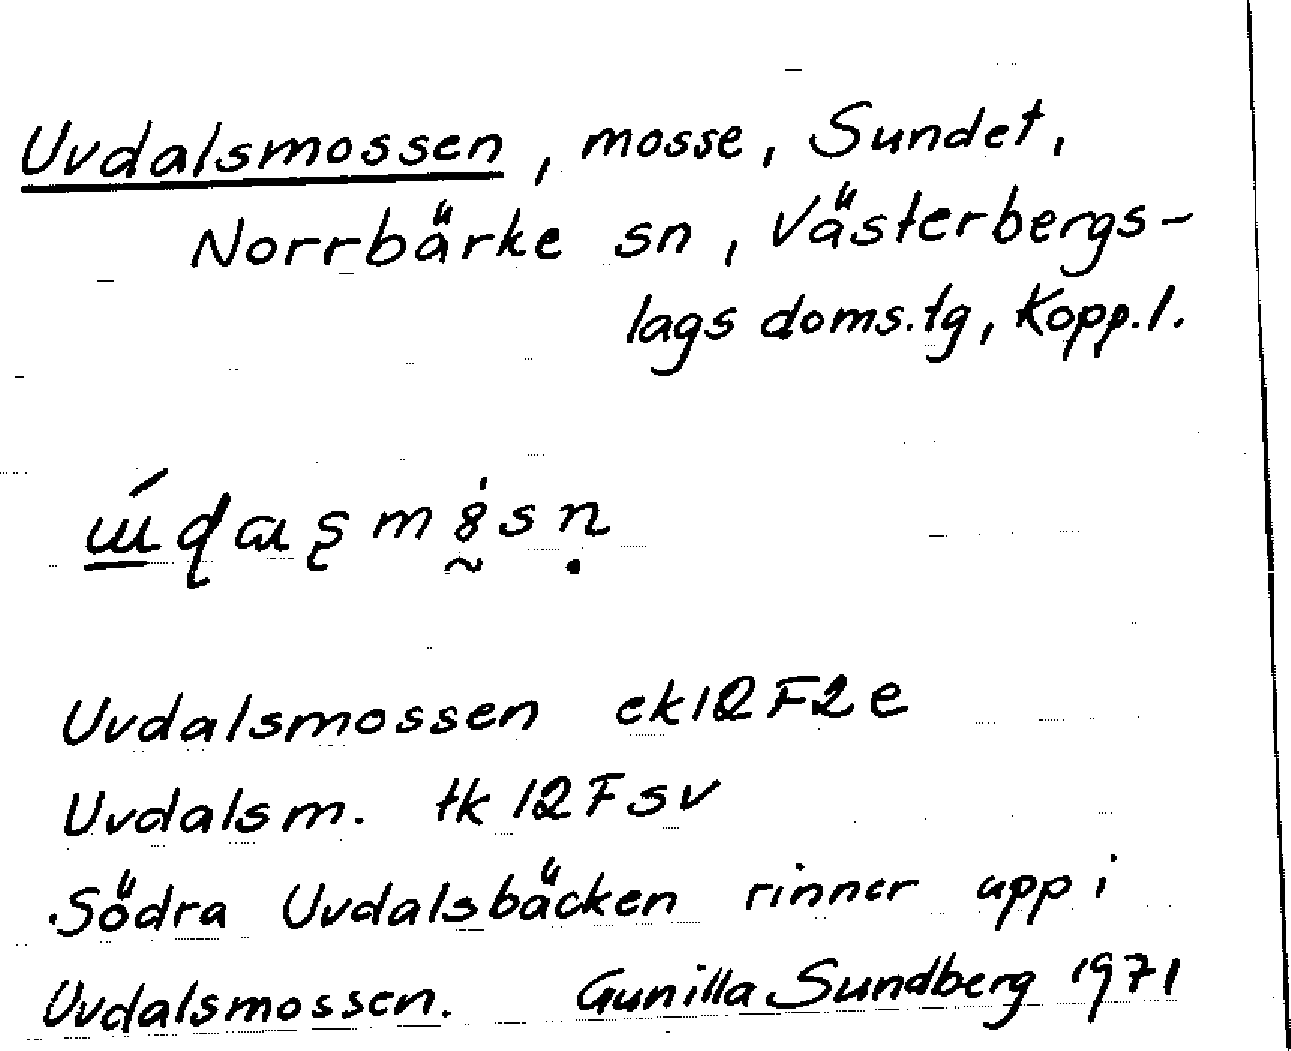 Uvdalsmossen, mosse, Sundet,
Norrbärke sn, Västerbergs-
lags doms.tg, Kopp.l.
Uvdalsmossen ek 12 F 2 e
Uvdalsm. tk 12 F sv
Södra Uvdalsbäcken rinner upp i
Uvdalsmossen. Gunilla Sundberg 1971